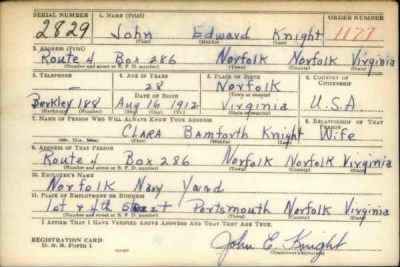 SERIAL NUMBER 1. NAME (Print) ORDER NUMBER
2829 John Edward Knight 1177
(First) (Middle) (Last)
2. ADDRESS (Print)
Route 4 Box 286 Norfolk Norfolk Virginia
(Number and street or R. F. D. number) (Town) (County) (State)
3. TELEPHONE 4. AGE IN YEARS 5. PLACE OF BIRTH 6. COUNTRY OF CITIZENSHIP
— 28 Norfolk
DATE OF BIRTH (Town or county)
Berkley 188 Aug 16 1912 Virginia U.S.A
(Exchange) (Number) (Mo.) (Day) (Yr.) (State or country)
7. NAME OF PERSON WHO WILL ALWAYS KNOW YOUR ADDRESS 8. RELATIONSHIP OF THAT PERSON
CLARA Bamforth Knight Wife
(Mr., Mrs., Miss) (First) (Middle) (Last)
9. ADDRESS OF THAT PERSON
Route 4 Box 286 Norfolk Norfolk Virginia
(Number and street or R. F. D. number) (Town) (County) (State)
10. EMPLOYER'S NAME
Norfolk Navy Yard
11. PLACE OF EMPLOYMENT OR BUSINESS
1st & 4th Portsmouth Norfolk Virginia
(Number and street or R. F. D. number) (Town) (County) (State)
I AFFIRM THAT I HAVE VERIFIED ABOVE ANSWERS AND THAT THEY ARE TRUE.
REGISTRATION CARD
D. S. S. FORM 1 John E. Knight
(Registrant's signature)